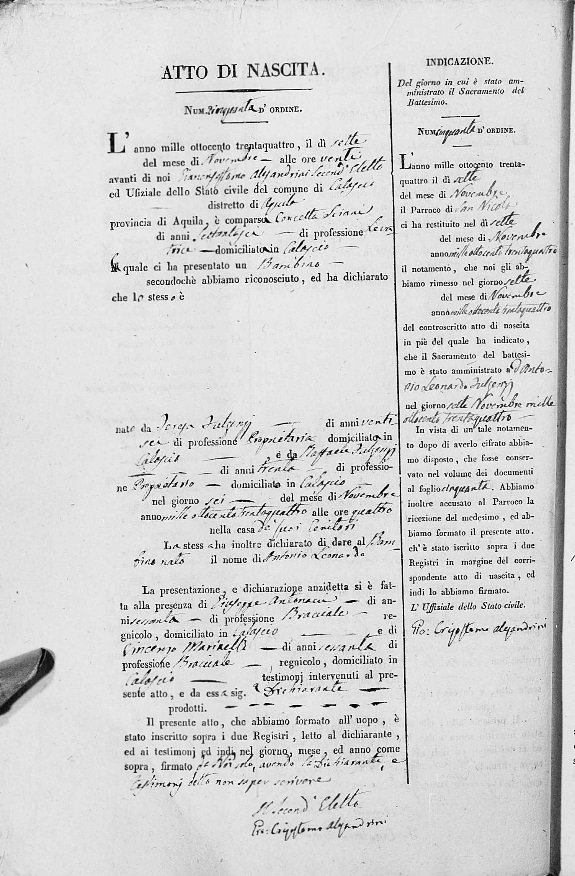 ATTO DI NASCITA.
NUM. Cinquanta D' ORDINE.
L'anno mille ottocento trentaquattro, il dì sette
del mese di Novembre — alle ore venti
avanti di noi Alejandrini Second' Eletto
ed Ufiziale dello Stato civile del comune di Calascio
— distretto di Aquila
provincia di Aquila, è comparsa Concetta
di anni — di professione Leva
trice — domiciliata in Calascio
la quale ci ha presentato un Bambino —
secondochè abbiamo riconosciuto, ed ha dichiarato
che lo stesso è
nato da Teresa — di anni venti
sei di professione Proprietaria domiciliata in
Calascio — e da Raffaele
— di anni trenta — di professio-
ne Proprietario — domiciliato in Calascio —
nel giorno sei — del mese di Novembre
anno mille ottocento trentaquattro alle ore quattro
nella casa de' suoi Genitori
La stessa ha inoltre dichiarato di dare al Bam-
bino nato il nome di Antonio Leonardo
La presentazione, e dichiarazione anzidetta si è fat-
ta alla presenza di Giuseppe Antonacci — di an-
ni sessanta — di professione Bracciale — re-
gnicolo, domiciliato in Calascio — e di
Vincenzo Marinelli — di anni sessanta di
professione Bracciale — regnicolo, domiciliato in
Calascio — testimonj intervenuti al pre-
sente atto, e da essa sig. Dichiarante —
prodotti. — — — — —
Il presente atto, che abbiamo formato all'uopo, è
stato inscritto sopra i due Registri, letto al dichiarante,
ed ai testimonj ed indi, nel giorno, mese, ed anno come
sopra, firmato da Noi solo, avendo la Dichiarante, e
testimonj detto non saper scrivere
Il Second' Eletto
Gio: Crisostomo Alejandrini
INDICAZIONE.
Del giorno in cui è stato am-
ministrato il Sacramento del
Battesimo.
NUM. cinquanta D' ORDINE.
L'anno mille ottocento trenta-
quattro il dì sette
del mese di Novembre
il Parroco di San Nicola
ci ha restituito nel dì sette
del mese di Novembre
anno mille ottocento trentaquattro
il notamento, che noi gli ab-
biamo rimesso nel giorno sette
del mese di Novembre
anno mille ottocento trentaquattro
del controscritto atto di nascita
in piè del quale ha indicato,
che il Sacramento del battesi-
mo è stato amministrato ad Anto-
nio Leonardo
nel giorno sette Novembre mille
ottocento trentaquattro —
In vista di un tale notamento
dopo di averlo cifrato abbia-
mo disposto, che fosse conser-
vato nel volume dei documenti
al foglio cinquanta. Abbiamo
inoltre accusato al Parroco la
ricezione del medesimo, ed ab-
biamo formato il presente atto.
ch'è stato iscritto sopra i due
Registri in margine del corri-
spondente atto di nascita, ed
indi lo abbiamo firmato.
L' Uffiziale dello Stato civile.
Gio: Crisostomo Alejandrini